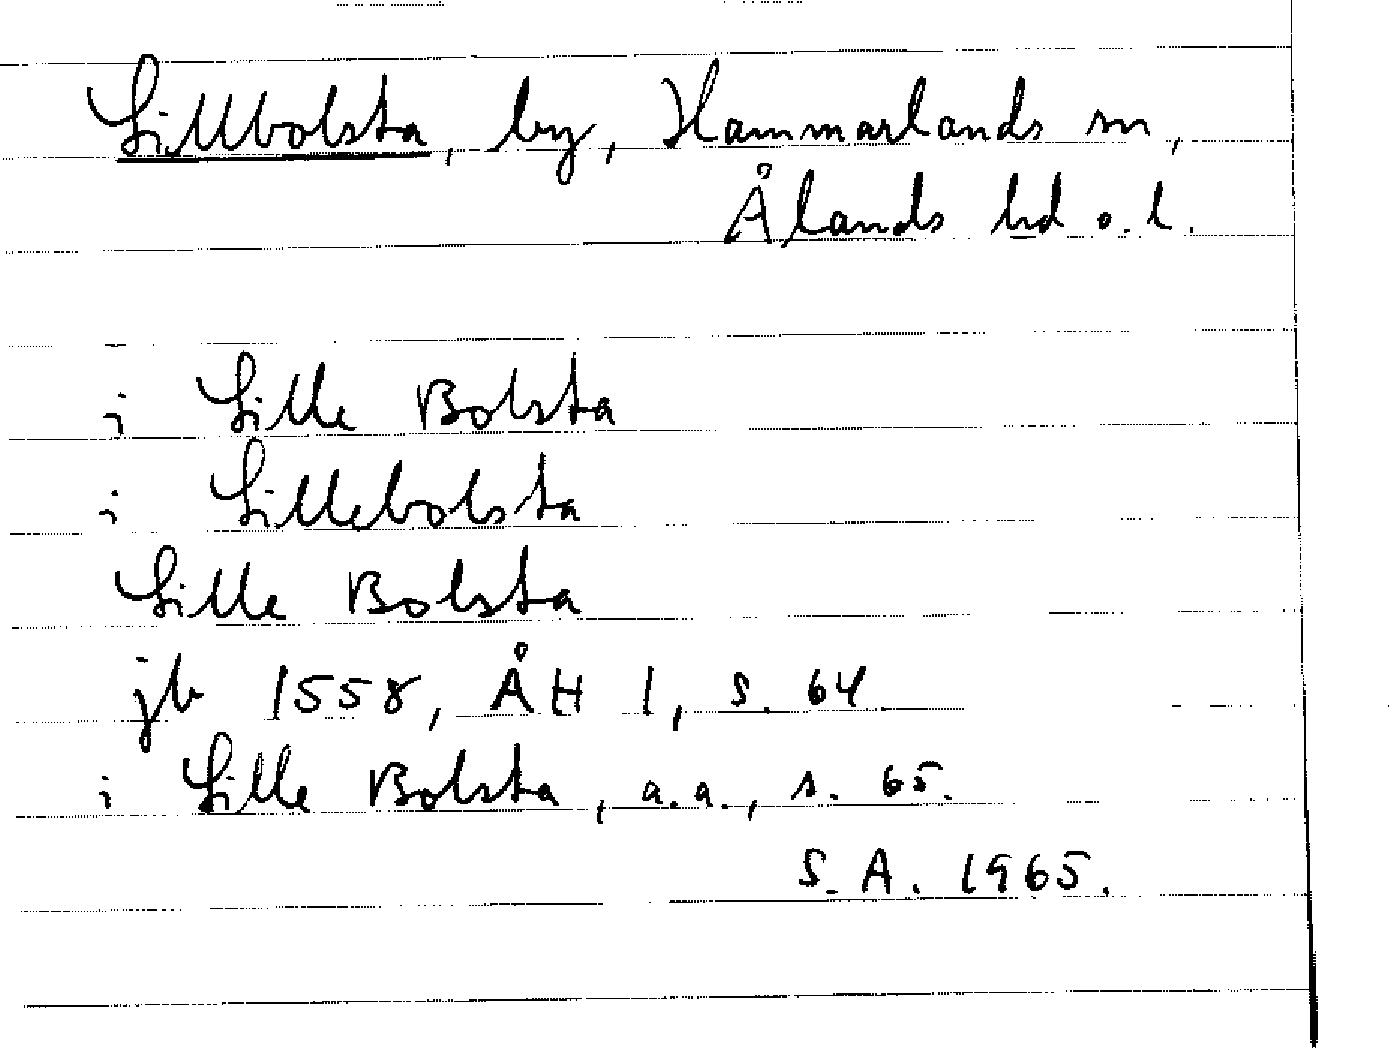 Lillbolsta, by, Hammarlands sn,
Ålands hd o. l.
i Lille Bolsta
i Lillebolsta
Lille Bolsta
jb 1558, ÅH 1, s. 64.
i Lille Bolsta, a.a., s. 65.
S. A. 1965.